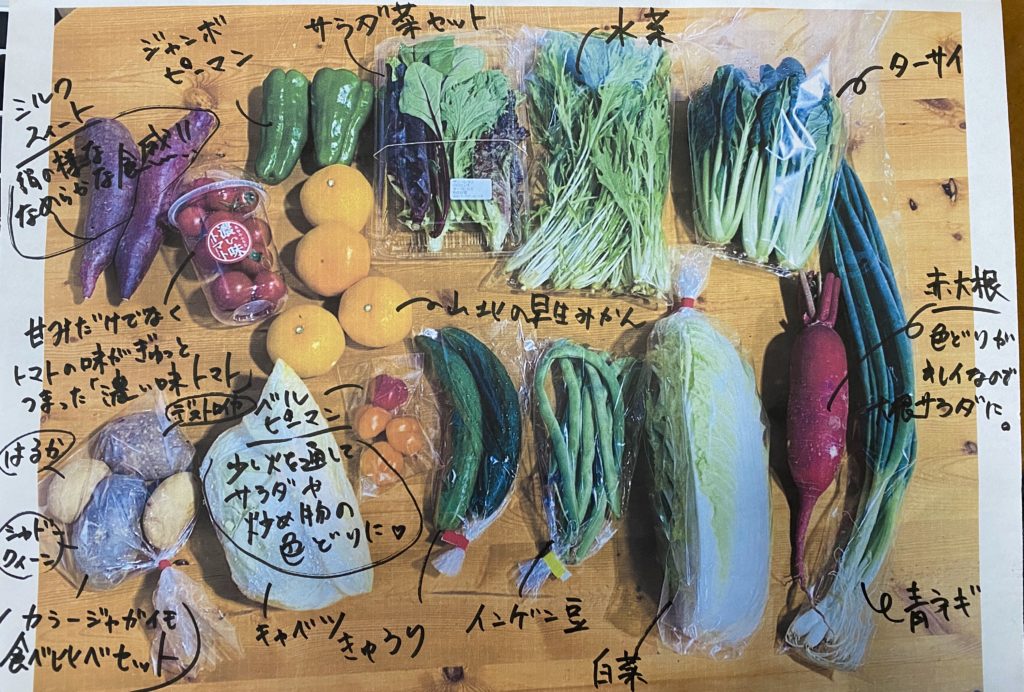 サラダ菜セット
水菜
ジャンボ
ピーマン
ターサイ
シルク
スイート
絹の様な
なめらかな食感!!
濃い味
トマト
赤大根
色どりが
キレイなので
大根サラダに。
山北の早生みかん
甘みだけでなく
トマトの味がぎゅっと
つまった「濃い味トマト」
デストロイヤー
ベル
ピーマン
少し火を通して
サラダや
炒め物の
色どりに♡
はるか
シャドー
クィーン
カラージャガイモ
食べ比べセット
キャベツ
きゅうり
インゲン豆
白菜
青ネギ